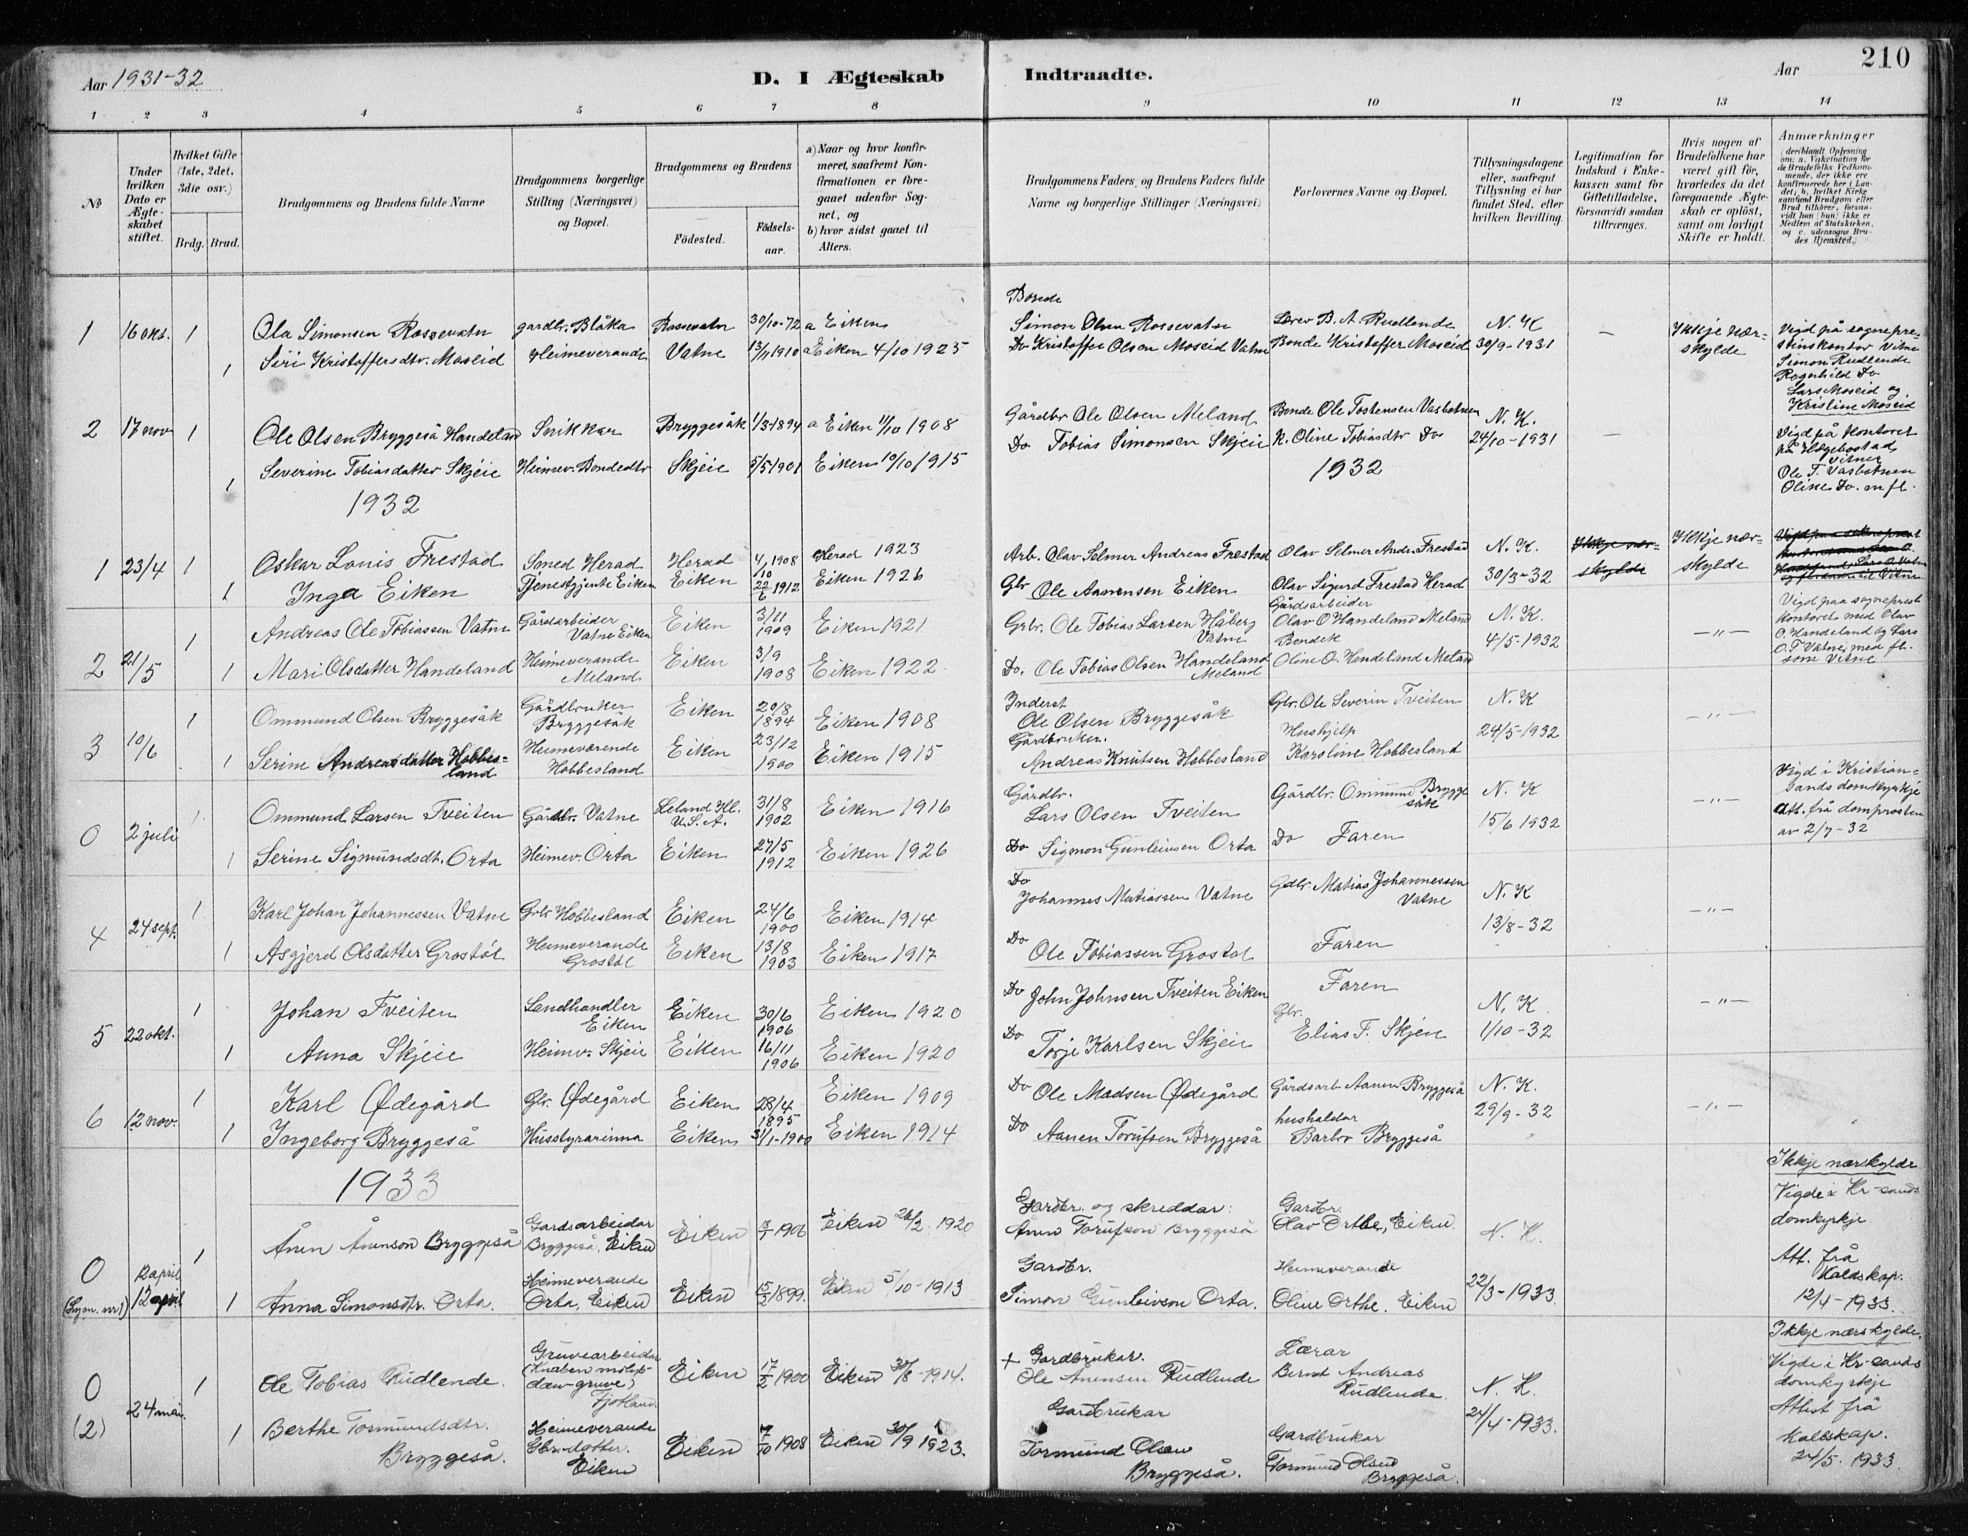 Aar 1931-32
D. I Ægteskab Indtraadte.
Aar
210
1 2 3 4 5 6 7 8 9 10 11 12 13 14
No
Under hvilken Dato er Ægteskabet stiftet.
Hvilket Gifte (1ste, 2det, 3die osv.)
Brdg. Brud.
Brudgommens og Brudens fulde Navne
Brudgommens borgerlige Stilling (Næringsvei) og Bopæl.
Brudgommens og Brudens
Fødested. Fødselsaar.
a) Naar og hvor konfirmeret, saafremt Konfirmationen er foregaaet udenfor Sognet, og
b) hvor sidst gaaet til Alters.
Brudgommens Faders, og Brudens Faders fulde Navne og borgerlige Stillinger (Næringsvei)
Forlovernes Navne og Bopæl.
Tillysningsdagene eller, saafremt Tillysning ei har fundet Sted, efter hvilken Bevilling.
Legitimation for Indskud i Enkekassen samt for Giftetilladelse, forsaavidt saadan tiltrænges.
Hvis nogen af Brudefolkene har været gift før, hvorledes da det foregaaende Ægteskab er opløst, samt om lovligt Skifte er holdt.
Anmærkninger
1 16 okt. 1 Ola Simonsen Rossevatn gardbr. Blåka Rossevatn 30/10-72 a Eiken
Bonde
Simon Olsen Rossevatn Lærer B. A. Rudlende N. K. — Ikkje nærskylde
1 Siri Kristoffersdtr. Moseid Heimeverande Vatne 13/11 1910 a Eiken 4/10 1925 Do Kristoffer Olsen Moseid Vatne Bonde Kristoffer Moseid 30/9-1931
Vigd på sogneprestinskontor Vitne Simon Rudlende Ragnhild Do Lars Moseid og Kristine Moseid
2 17 nov 1 Ole Olsen Bryggeså Handeland Snikkar Bryggesåk 1/3 1894 a Eiken 11/10 1908 Gårdbr Ole Olsen Meland Bonde Ole Tostensen Vasbotnen N. K.
1 Severine Tobiasdatter Skjeie Heimev. Bondedtr Skjeie 5/5 1901 Eiken 10/10 1915 Do Tobias Simonsen Skjeie K. Oline Tobiasdtr Do 24/10-1931 —
Vigd på Kontoret på Hægebostad Vitner Ole T. Vasbotnen Oline Do. m fl.
1932 1932
1 23/4 1 Oskar Louis Frestad Smed Herad Herad 4/10 1908 Herad 1923 Arb. Olav Selmer Andreas Frestad Olav Selmer Andr. Frestad N. K. Ikkje nærskylde Ikkje nærskylde
1 Inga Eiken Tjenestgjente Eiken Eiken 22/6 1912 Eiken 1926 Gbr Ole Aanensen Eiken Olav Sigurd Frestad Herad 30/3-32
2 21/5 1 Andreas Ole Tobiassen Vatne Gårdsarbeider Vatne Eiken Eiken 3/11 1909 Eiken 1921 Grbr. Ole Tobias Larsen Håberg Vatne Gårdsarbeider Olav O Handeland Meland N. K. —"—
1 Mari Olsdatter Handeland Heimeverande Meland Eiken 3/9 1908 Eiken 1922 Do. Ole Tobias Olsen Handeland Meland Bondek Oline O. Handeland Meland 4/5-1932
Vigd paa sogneprest kontoret med Olav O. Handeland og Lars O. T Vatne, med fl. som Vitne
3 10/6 1 Ommund Olsen Bryggesåk Gårdbruker Bryggesåk Eiken 20/8 1894 Eiken 1908 Inderst Ole Olsen Bryggesåk Gbr. Ole Severin Tveiten N. K —"—
1 Serine Andreasdatter Hobbesland Heimeværende Hobbesland Eiken 23/12 1900 Eiken 1915 Gårdbruker. Andreas Knutsen Hobbesland Hushjelp Karoline Hobbesland 24/5-1932
0 2 juli 1 Ommund Larsen Tveiten Gårdbr. Vatne Leland Ill. U.S.A. 31/8 1902 Eiken 1916 Gårdbr. Lars Olsen Tveiten Gårdbr. Ommund Bryggesåk N. K —"—
1 Serine Sigmundsdt. Orta Heimev. Orta Eiken 27/5 1912 Eiken 1926 Do Sigmon Gunleivsen Orta Do Faren 15/6 1932
Vigd i Kristiansands domkyrkje att. frå domprosten av 2/7-32
4 24 sept. 1 Karl Johan Johannessen Vatne Grbr Hobbesland Eiken 24/6 1900 Eiken 1914 Do Johannes Matiassen Vatne Gdbr. Matias Johannessen Vatne N. K —"—
1 Asgjerd Olsdatter Grostøl Heimeverande Grostøl Eiken 13/8 1903 Eiken 1917 Do Ole Tobiassen Grostøl Faren 13/8-32
5 22 okt. 1 Johan Tveiten Landhandler Eiken Eiken 30/6 1906 Eiken 1920 Do John Johnsen Tveiten Eiken Faren N. K —"—
1 Anna Skjeie Heimev. Skjeie Eiken 16/11 1906 Eiken 1920 Do Torje Karlsen Skjeie Gbr. Elias T. Skjeie 1/10-32
6 12 nov. 1 Karl Ødegård Gbr. Ødegård Eiken 28/4 1895 Eiken 1909 Do Ole Madsen Ødegård Gårdsarb. Aanen Bryggeså N. K. —"—
1 Ingeborg Bryggeså Husstyrarinna Eiken 31/1-1900 Eiken 1914 Do Aanen Torufsen Bryggeså hushaldar Barbro Bryggeså 29/9-32
1933
0 (Sogn. nr. 1) 12 april 12 april 1 Ånen Ånenson Bryggeså Gardsarbeidar Bryggeså, Eiken Eiken 1906 Eiken 1920 Gardbr. og skreddar: Ånen Torufson Bryggeså Gardbr. Olav Orthe, Eiken N. K.
1 Anna Simonsdtr. Orta. Heimeverande Orta, Eiken Eiken 15/2 1899. Eiken 5/10-1913 Gardbr. Simon Gunleivson Orta. Heimeverande Oline Orthe. Eiken 22/3-1933.
Ikkje nærskylde Vigde i Kr-sands domkyrkje Att. frå Kaldskap. 12/4-1933.
0 (2) 24 mai 1 Ole Tobias Rudlende. Gruvearbeidar (Knaben molybdæn-gruve) Fjotland. Eiken 17/2 1900 Eiken 30/8-1914. + Gardbrukar. Ole Ånensen Rudlende Lærar Bernt Andreas Rudlende N. K.
1 Berthe Tormundsdtr. Bryggeså. Heimeverande Gbr.dotter. Eiken Eiken 7/10 1908 Eiken 30/9 1923. Gardbrukar Tormund Olsen Bryggeså. Gardbrukar Tormund Olsen Bryggeså. 24/4-1933.
Ikkje nærskylde. Vigde i Kr-sands domkyrkje Attest frå Kaldskap. 24/5. 1933